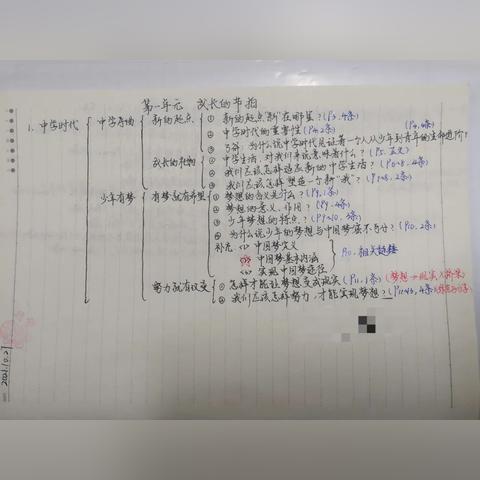 第一单元 成长的节拍
1. 中学时代 中学序曲 新的起点 ① 新的起点"新"在哪里？(P3, 4条)
② 中学时代的重要性 (P4, 2条) (P4, 4条)
③ 为什么说中学时代见证着一个人从少年到青年的生命进阶？
成长的礼物 ① 中学生活，对我们来说意味着什么？(P5, 正文)
② 我们应该怎样适应新的中学生活？
③ 我们应该怎样塑造一个新"我"？
少年有梦 有梦就有希望 ① 梦想的含义是什么？(P9, 1条)
② 梦想的意义、作用？(P9, 4条)
③ 少年梦想的特点？
④ 为什么说少年的梦想与中国梦密不可分？(P10, 2条)
补充 (1) 中国梦定义
(2) 中国梦基本内涵 P10, 相关链接
(3) 实现中国梦途径
努力就有改变 ① 怎样才能让梦想变成现实 (P11, 1条) (梦想→现实,桥梁)
② 我们应该怎样努力，才能实现梦想？